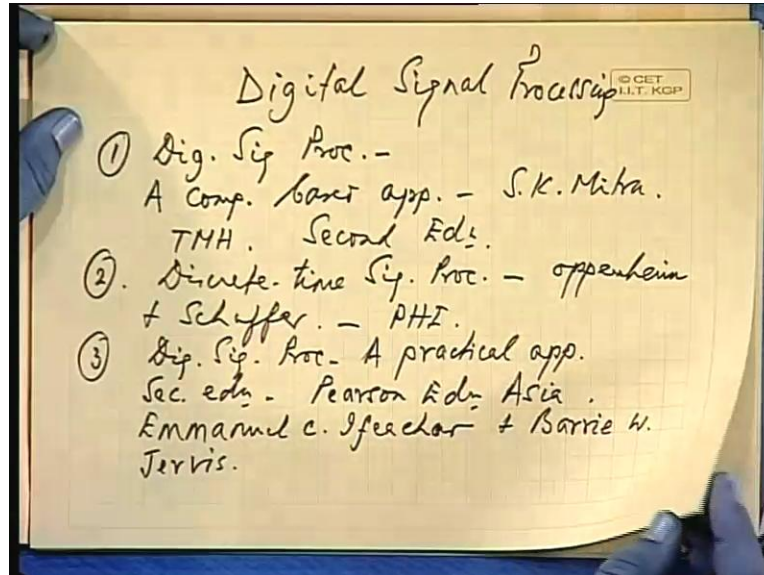 Digital Signal Processing
© CET
I.I.T. KGP
① Dig. Sig Proc. -
A comp. based app. - S.K. Mitra.
TMH. Second Edn.
②. Discrete-time Sig. Proc. - oppenheim
+ Schaffer. - PHI.
③ Dig. Sig. Proc- A practical app.
Sec. edn - Pearson Edn Asia.
Emmanuel C. Ifeachor + Barrie W.
Jervis.